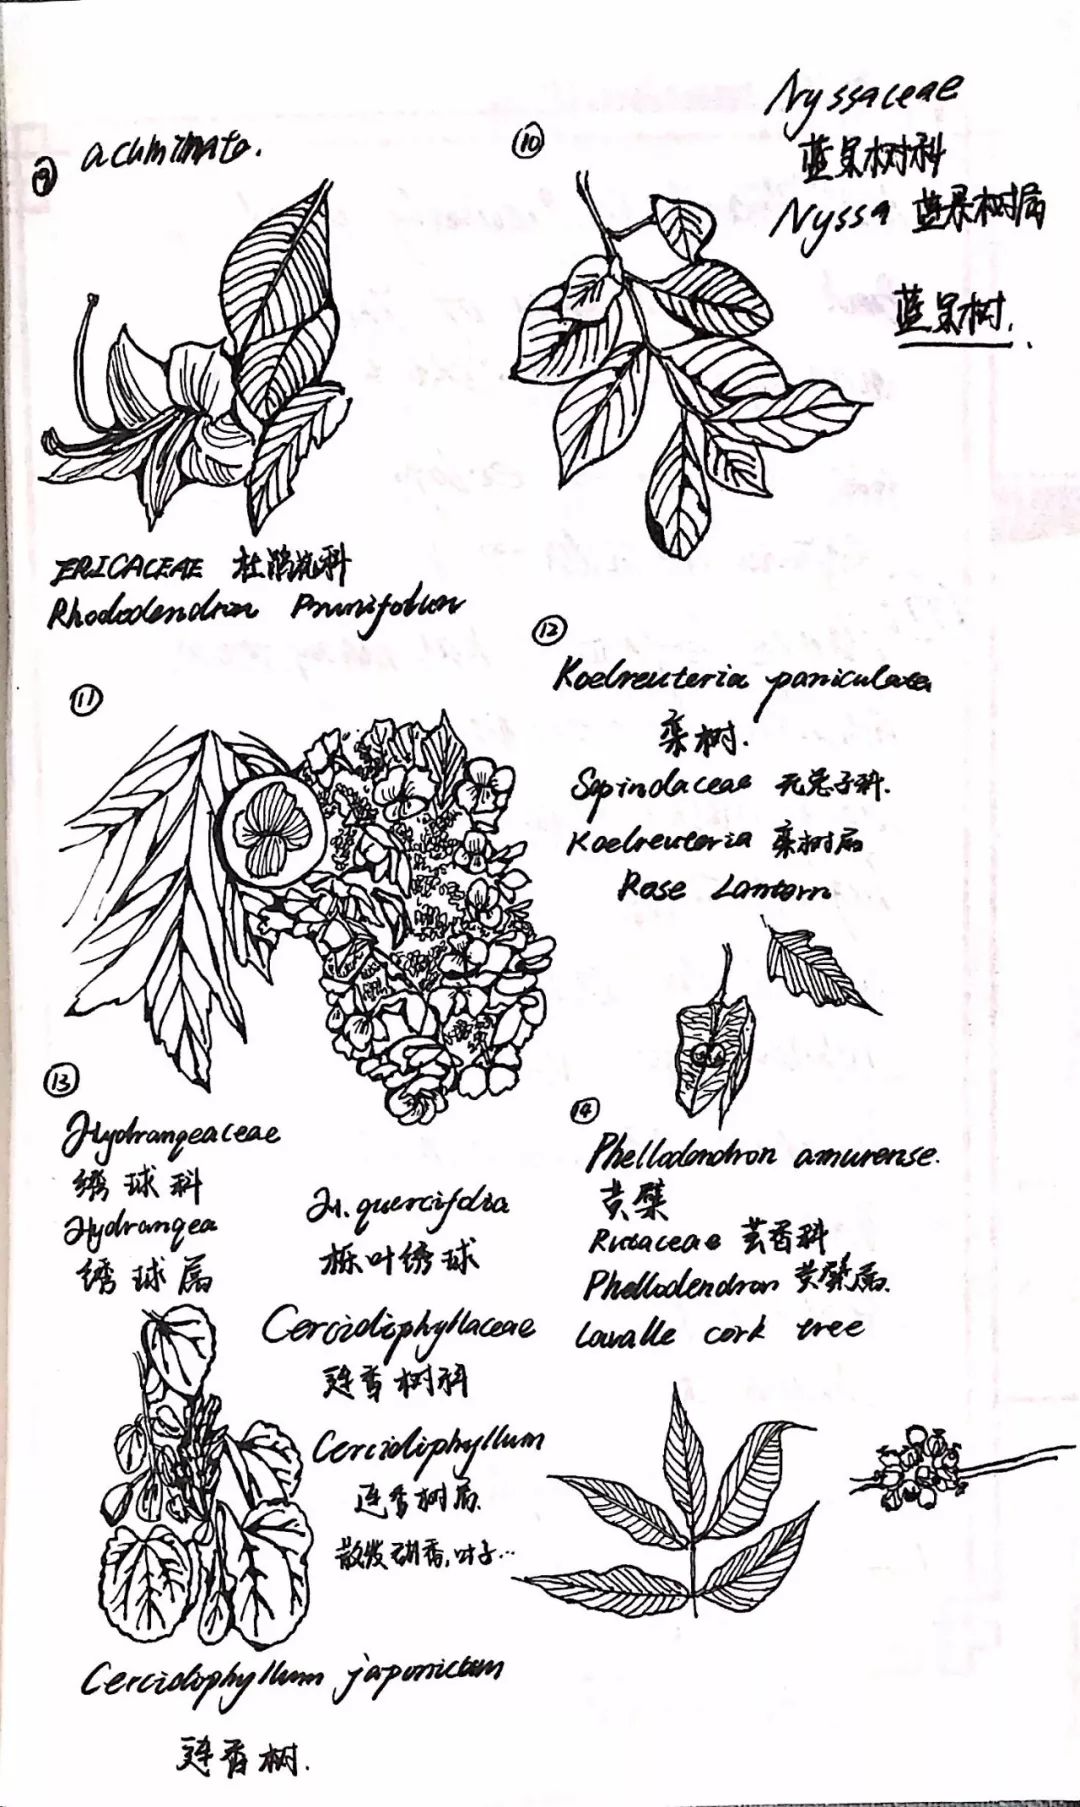 ⑨ acuminata.
ERICACEAE 杜鹃花科
Rhododendron Prunifolium
⑩
Nyssaceae
蓝果树科
Nyssa 蓝果树属
蓝果树.
⑪
⑫
Koelreuteria paniculata
栾树.
Sapindaceae 无患子科.
Koelreuteria 栾树属
Rose Lantern
⑬
Hydrangeaceae
绣球科
Hydrangea
绣球属
H. quercifolia
栎叶绣球
Cercidiphyllaceae
连香树科
Cercidiphyllum
连香树属.
散发 香,叶子…
Cercidophyllum japonicum
连香树.
⑭
Phellodendron amurense.
黄檗
Rutaceae 芸香科
Phellodendron 黄檗属.
Lavalle cork tree